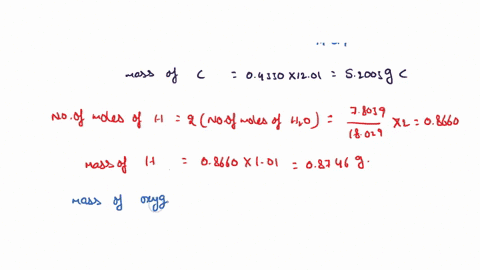 mass of C = 0.4330 X 12.01 = 5.2003 g C
No. of moles of H = 2 ( No of moles of H2O ) = 7.803g / 18.02g X 2 = 0.8660
mass of H = 0.8660 X 1.01 = 0.8746 g.
mass of oxyg